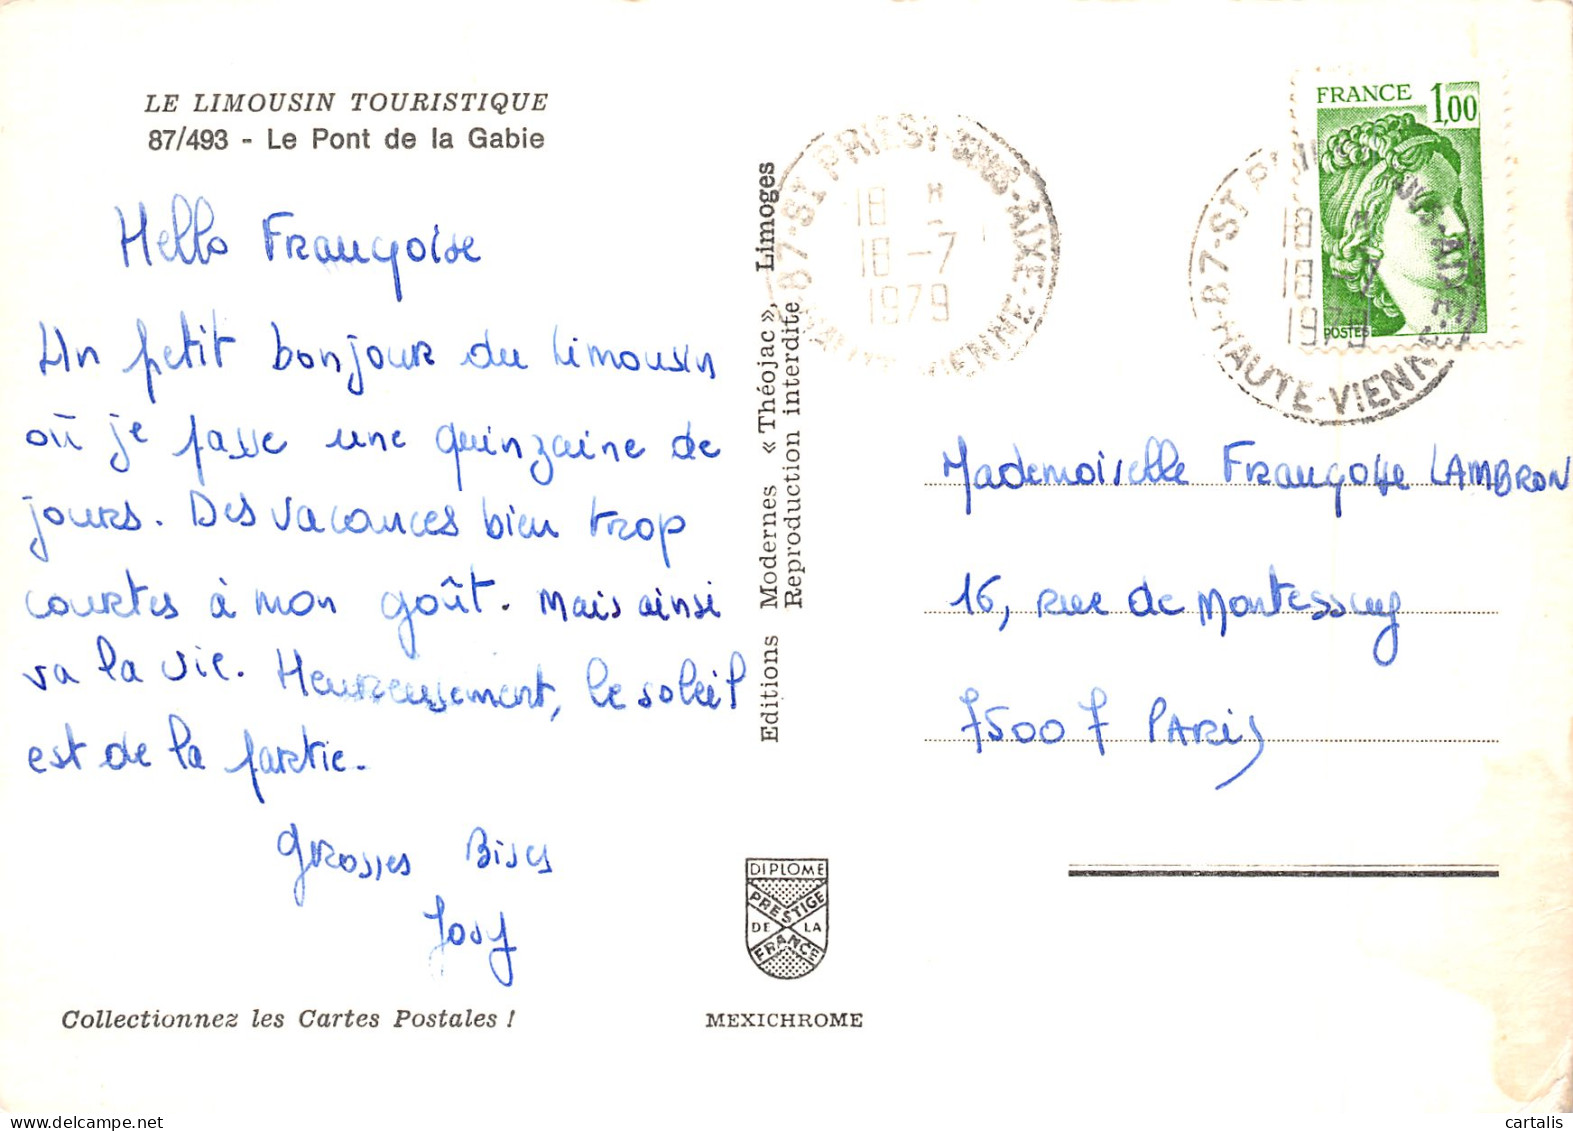 LE LIMOUSIN TOURISTIQUE
87/493 - Le Pont de la Gabie
Hello Françoise
Un petit bonjour du Limousin
où je passe une quinzaine de
jours. Des vacances bien trop
courtes à mon goût. Mais ainsi
va la vie. Heureusement, le soleil
est de la partie.
Grosses Bises
Josy
Collectionnez les Cartes Postales !
Editions Modernes « Théojac », Limoges
Reproduction interdite
DIPLOME
PRESTIGE
DE LA
FRANCE
MEXICHROME
87-ST PRIEST-SOUS-AIXE-
HAUTE-VIENNE
18 H
18-7
1979
FRANCE 1,00
POSTES
87-ST PRIEST-SOUS-AIXE-
HAUTE-VIENNE
18 H
18-7
1979
Mademoiselle Françoise LAMBRON
16, rue de Montessuy
75007 PARIS
cartalis